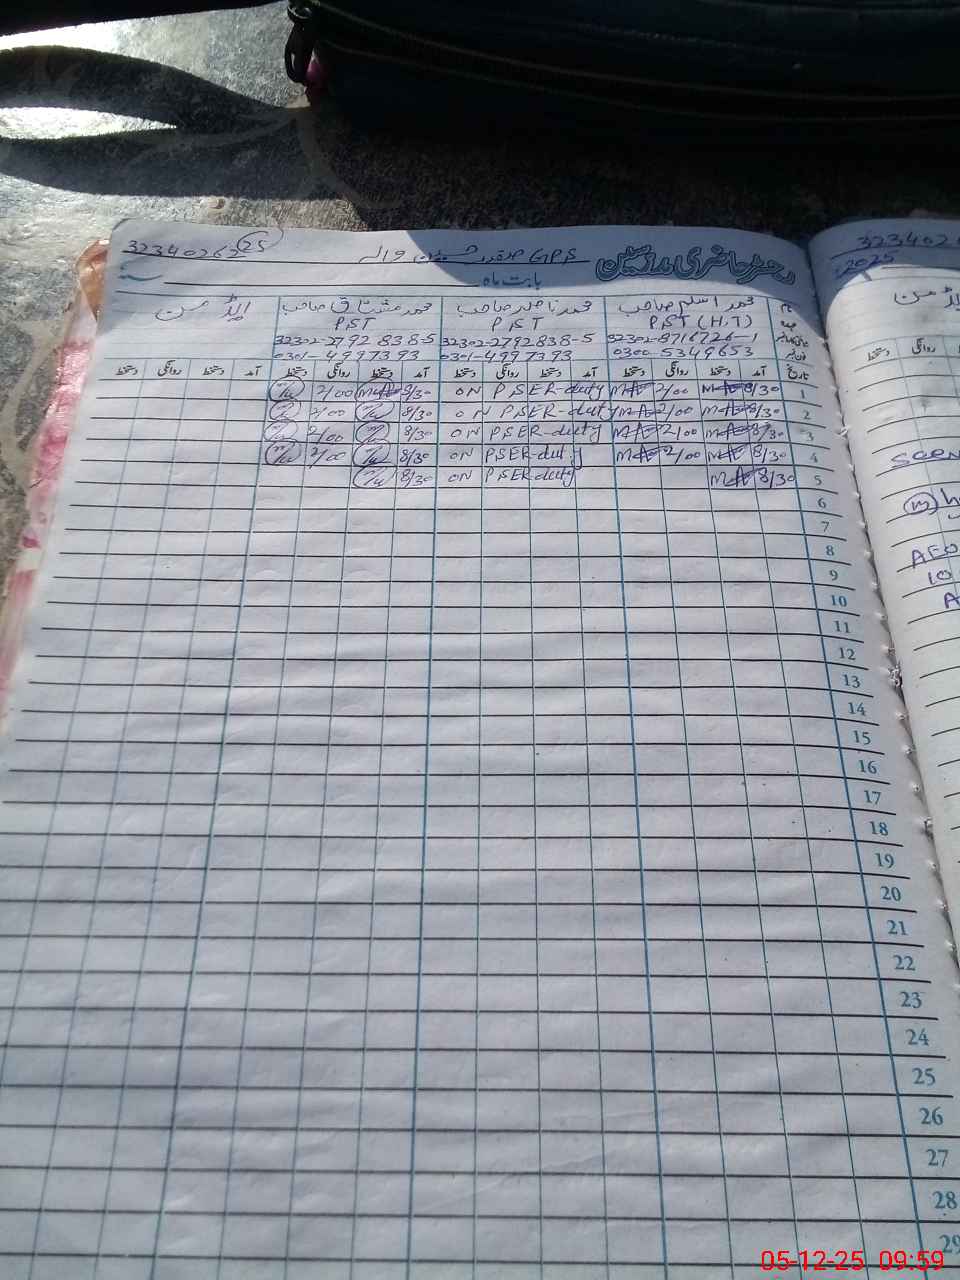 32340262 25
GPS صفدر والہ
رجسٹر حاضری مدرسین
بابت ماہ
سنہ
نام
محمد اسلم صاحب
محمد ناصر صاحب
محمد مشتاق صاحب
عہدہ
PST (H.T)
PST
PST
32302-8716726-1
32302-2792838-5
32302-2792838-5
0300-5349653
0301-4997393
0301-4997393
تاریخ آمد دستخط روانگی دستخط آمد دستخط روانگی دستخط آمد دستخط روانگی دستخط آمد دستخط روانگی دستخط
1 8/30 2/00 ON PSER-duty 8/30 2/00
2 8/30 2/00 ON PSER-duty 8/30 2/00
3 8/30 2/00 ON PSER-duty 8/30 2/00
4 8/30 2/00 ON PSER-duty 8/30 2/00
5 8/30 ON PSER-duty 8/30
6
7
8
9
10
11
12
13
14
15
16
17
18
19
20
21
22
23
24
25
26
27
28
29
323402
2025
روانگی دستخط
AEO
10
05-12-25 09:59